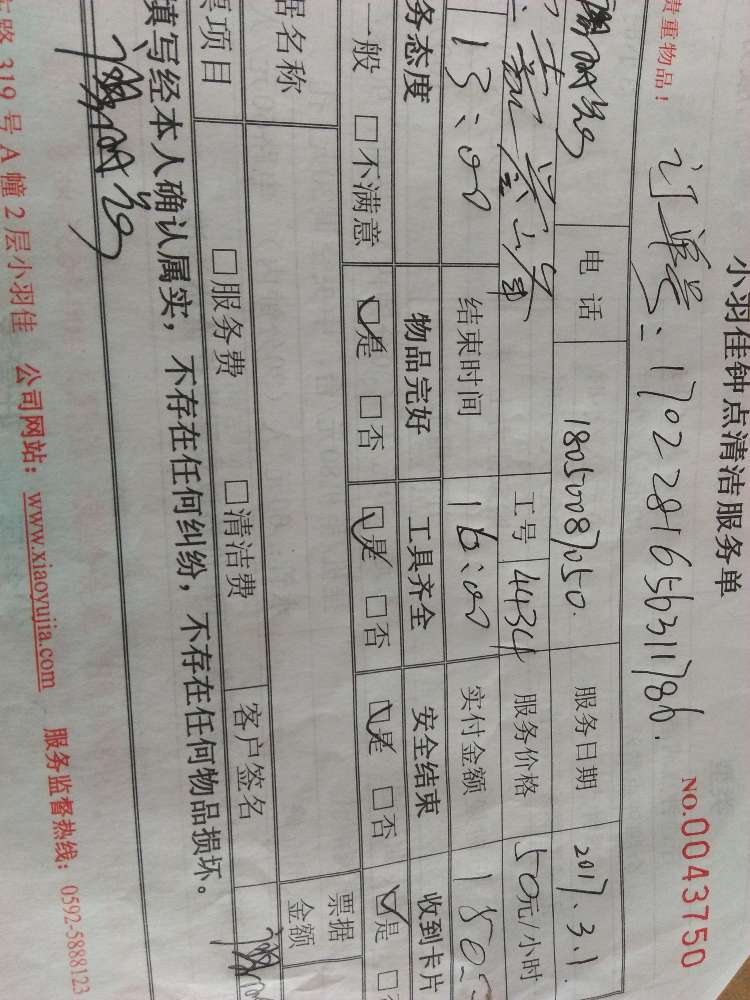 小羽佳钟点清洁服务单
贵重物品！
NO.0043750
订单号：170228165631786.
电 话 18050087050. 服务日期 2017.3.1
工号 4434 服务价格 50元/小时
13:00 结束时间 16:00 实付金额
务态度 物品完好 工具齐全 安全结束 收到卡片
一般 □不满意 ☑是 □否 ☑是 □否 ☑是 □否 ☑是
居名称 票据金额
票项目 □服务费 □清洁费 客户签名
填写经本人确认属实，不存在任何纠纷，不存在任何物品损坏。
路 319 号 A 幢 2 层小羽佳 公司网站：www.xiaoyujia.com 服务监督热线：0592-5888123